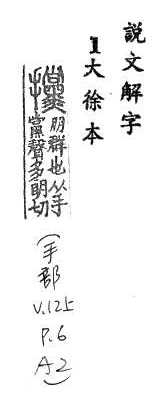 說文解字
1大徐本
攩朋群也从手
黨聲多朗切
(手部
V.12上
P.6
A2)